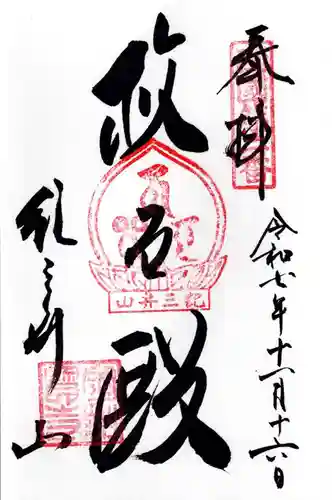 奉拝
令和七年十一月十六日
救世殿
紀三井山
紀三井山